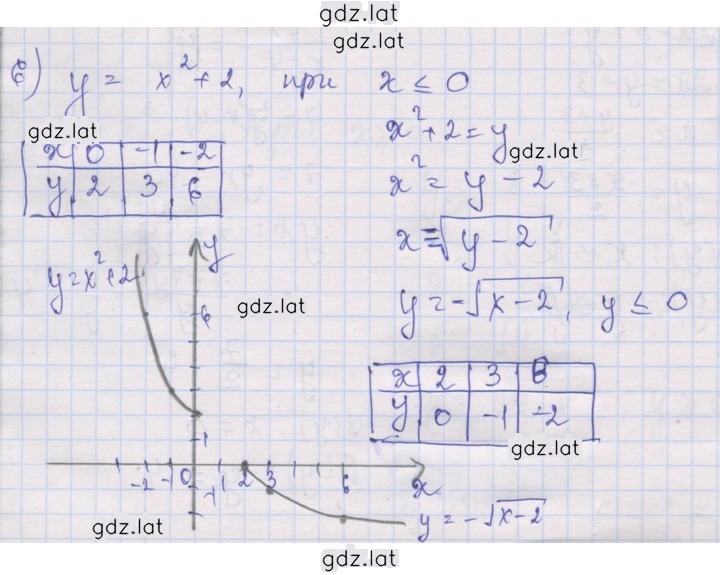 gdz.lat
gdz.lat
б) y = x² + 2, при x ≤ 0
gdz.lat
x² + 2 = y
gdz.lat
x 0 -1 -2
y 2 3 6
x² = y - 2
x = -√y - 2
y = x² + 2
y
6
gdz.lat
y = -√x - 2, y ≤ 0
x 2 3 6
y 0 -1 -2
gdz.lat
1
-2 -1 0 1 2 3 6 x
-1
gdz.lat
y = -√x - 2
gdz.lat